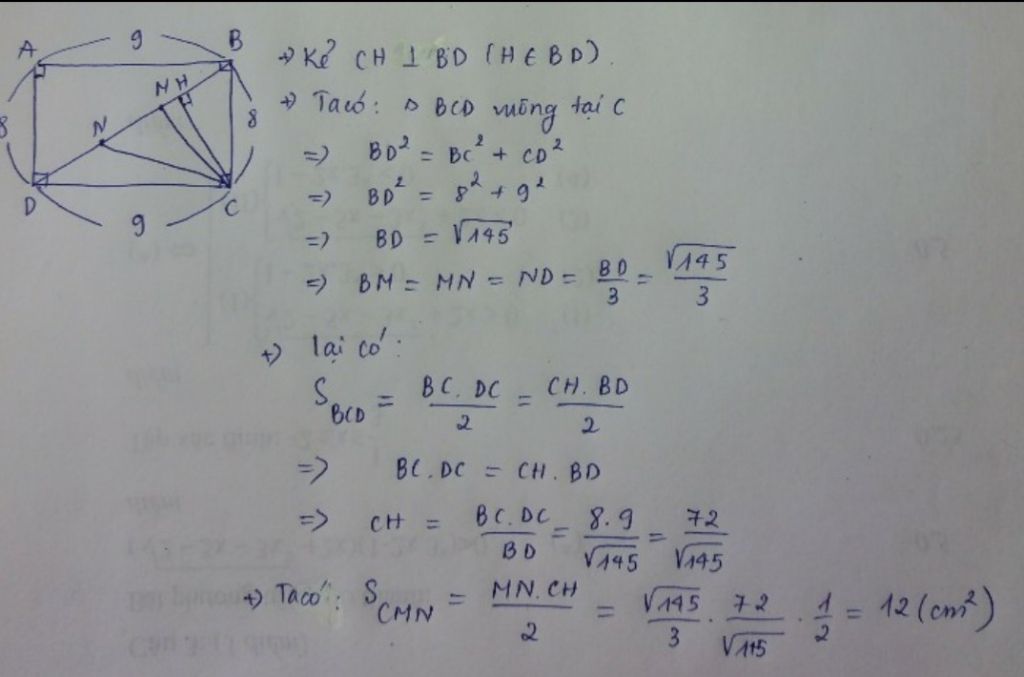 A 9 B
8 N M H 8
D 9 C
+) Kẻ CH ⊥ BD (H ∈ BD).
+) Ta có: Δ BCD vuông tại C
=> BD² = BC² + CD²
=> BD² = 8² + 9²
=> BD = √145
=> BM = MN = ND = BD/3 = √145/3
+) lại có:
S_BCD = BC.DC/2 = CH.BD/2
=> BC.DC = CH.BD
=> CH = BC.DC/BD = 8.9/√145 = 72/√145
+) Ta có: S_CMN = MN.CH/2 = √145/3 . 72/√145 . 1/2 = 12 (cm²)